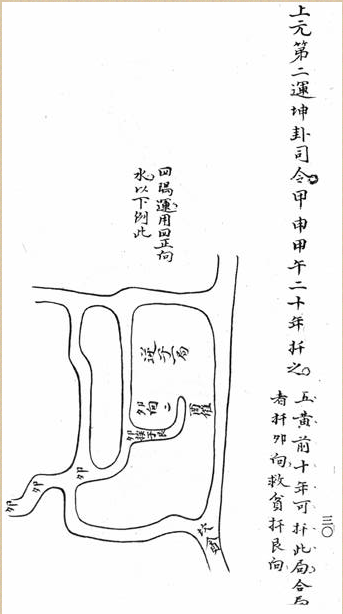 上元第二運坤卦司令。甲申甲午二十年扦之。
五黃前十年可扦此局合局
者扦卯向，救貧扦艮向
三〇
四隅運用四正向
水以下例此
逆子局
卯向二
卯
卯
卯
卯